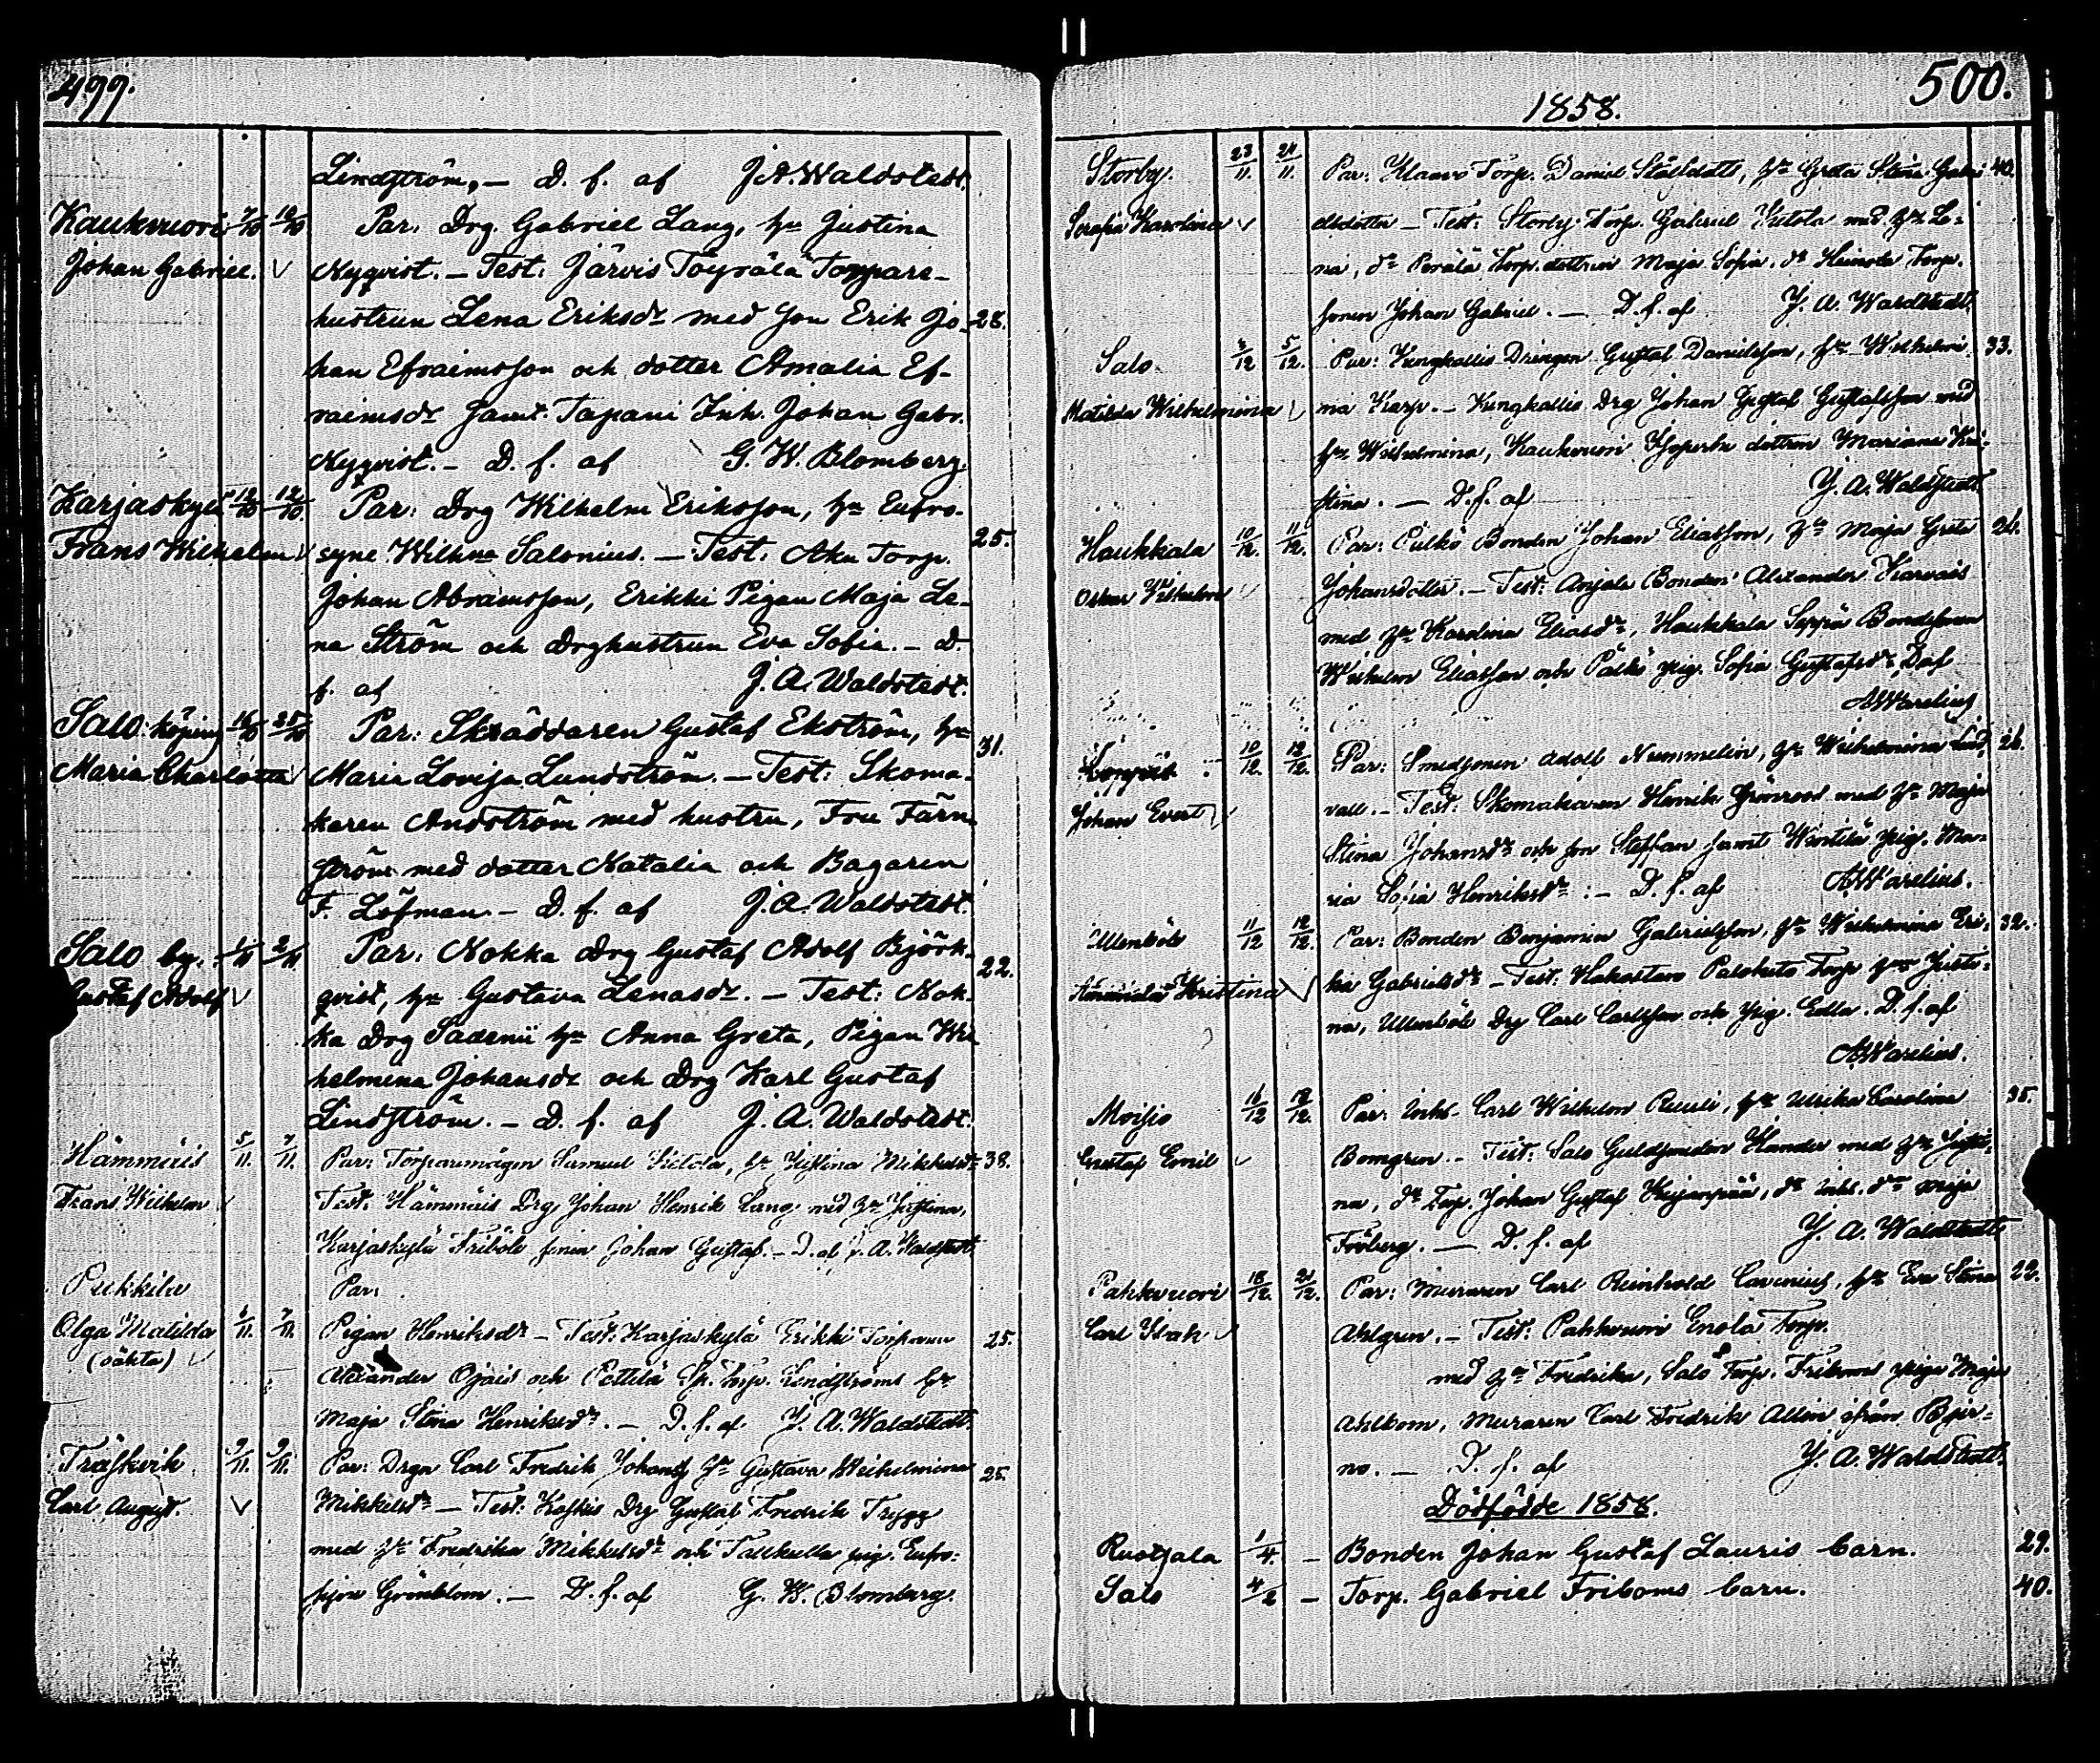 499.
Lindström, — D. f. af J. A. Waldstedt.
Kaukvuori 7/10 10/10 Par. Drg. Gabriel Lang, hu Justina
Johan Gabriel. Nyqvist. — Test: Järvis Töyrälä Torppare-
hustrun Lena Eriksdr med son Erik Jo- 28.
han Efraimsson och dotter Amalia Ef-
raimsdr samt Tapani Inh. Johan Gabr.
Nyqvist. — D. f. af G. W. Blomberg.
Karjaskylä 12/10 12/10. Par: Drg Wilhelm Eriksson, hu Eufro-
Frans Wilhelm syne Wilhna Salonius. — Test: Aku Torp. 25.
Johan Abramsson, Erikki Pigan Maja Le-
na Ström och drghustrun Eva Sofia. — D.
f. af J. A. Waldstedt.
Salo köping 16/10 25/10 Par: Skräddaren Gustaf Ekström, hu
Maria Charlotta Maria Lovisa Lundström. — Test: Skoma- 31.
karen Andström med hustru, Fru Färn-
ström med dotter Natalia och Bagaren
F. Löfman. — D. f. af J. A. Waldstedt.
Salo by. 1/11 2/11 Par: Nokka Drg Gustaf Adolf Björk-
Gustaf Adolf qvist, hu Gustava Lenasdr. — Test: Nok- 22.
ka Drg Sadenii hu Anna Greta, Pigan Wil
helmina Johansdr och Drg Karl Gustaf
Lindström. — D. f. af J. A. Waldstedt.
Hämmäis 5/11. 7/11. Par: Torparemågen Samuel, hu Justina Mikkelsdr 38.
Frans Wilhelm Test: Hämmäis Drg Johan Henrik Lang med hu Justina,
Karjaskylä Friböle sonen Johan Gustaf. — D. af J. A. Waldstedt.
Pukkila Par:
Olga Matilda 6/11. 7/11. Pigan Henriksdr — Test: Karjaskylä Erikki Torparen 25.
(oäkta) Alexander Ojais och Pettilä Torp. Lindströms hu
Maja Stina Henriksdr. — D. f. af J. A. Waldstedt.
Träskvik 9/11. 9/11. Par: Drgn Carl Fredrik Johanss hu Gustava Wilhelmina 25.
Carl August. Mikkelsdr — Test: Koskis Drg Gustaf Fredrik Trygg
med hu Fredrika Mikkelsdr och Tallkulla pig. Eufro-
syne Grönblom. — D. f. af G. W. Blomberg.
500.
1858.
Storby 23/11. 24/11. Par: Torp. Daniel, hu Greta Stina Gabri 40.
Serafia Karolina elsdotter — Test: Storby Torp. Gabriel med hu Le-
na, do Perälä Torp. dottren Maja Sofia, do Heinola Torp.
sonen Johan Gabriel. — D. f. af J. A. Waldstedt.
Salo 2/12 5/12. Par: Kungkallio Drängen Gustaf Danielsson, hu Wilhelmi 33.
Matilda Wilhelmina na Karp. — Kungkallio Drg Johan Gustaf Gustafsson med
hu Wilhelmina, Kaukvuori dottren Mariana Kri-
stina. — D. f. af J. A. Waldstedt.
Haukkala 10/12. 11/12. Par: Pulkö Bonden Johan Eliasson, hu Maja Greta 26.
Oskar Wilhelm Johansdotter. — Test: Anjala Bonden Alexander Karvais
med hu Karolina Eliasdr, Haukkala Seppä Bondesonen
Wilhelm Eliasson och pig. Sofia Gustafsdr. D af
AWarelius
10/12. 12/12. Par: Smedsonen Adolf Nummelin, hu Wilhelmina Lind- 26.
Johan Evert vall. — Test: Skomakaren Henrik Grönroos med hu Maja
Stina Johansdr och son Steffan samt Wintilä pig. Ma-
ria Sofia Henriksdr. — D. f. af AWarelius.
Ullenböle 11/12 12/12. Par: Bonden Benjamin Gabrielsson, hu Wilhelmina Eri- 32.
Amanda Kristina ka Gabrielsdr — Test: Hakostaro Torp hu Justi-
na, Ullenböle Drg Carl Carlsson och Pig. Edla. D. f. af
AWarelius.
Moisio 16/12 18/12. Par: Inhs. Carl Wilhelm, hu Ulrika Carolina 35.
Gustaf Emil Bomgren. — Test: Salo Guldsmeden Kander med hu Justi-
na, do Torp. Johan Gustaf, do Inhs. Maja
Fröberg. — D. f. af J. A. Waldstedt
Pahkvuori 18/12. 21/12. Par: Muraren Carl Reinhold, hu Eva Stina 22.
Carl Isak Ahlgren. — Test: Pahkvuori Enola Torp.
med hu Fredrika, Salo Torp. Fribom piga Maja
Ahlbom, Muraren Carl Fredrik Allin ifrån Bjer-
no. — D. f. af J. A. Waldstedt.
Dödfödde 1858.
Ruotsala 1/4 — Bonden Johan Gustaf Lauris barn. 29.
Salo 4/2 — Torp. Gabriel Friboms barn. 40.